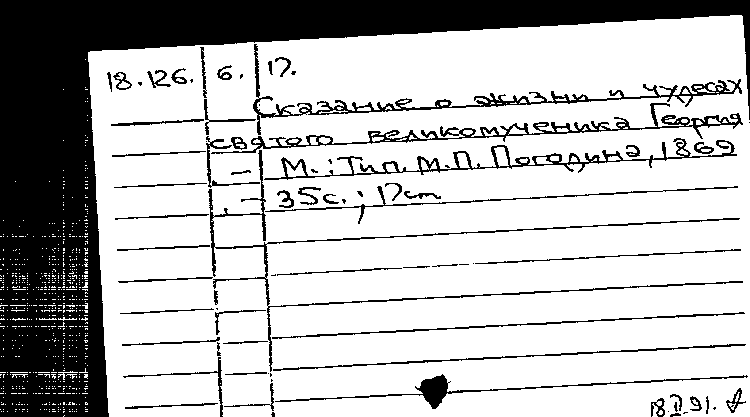 18.126. 6. 17.
Сказание о жизни и чудесах
святого великомученика Георгия
. – М.: Тип. М.П. Погодина, 1869
. – 35с.; 17cm
18.II.91.